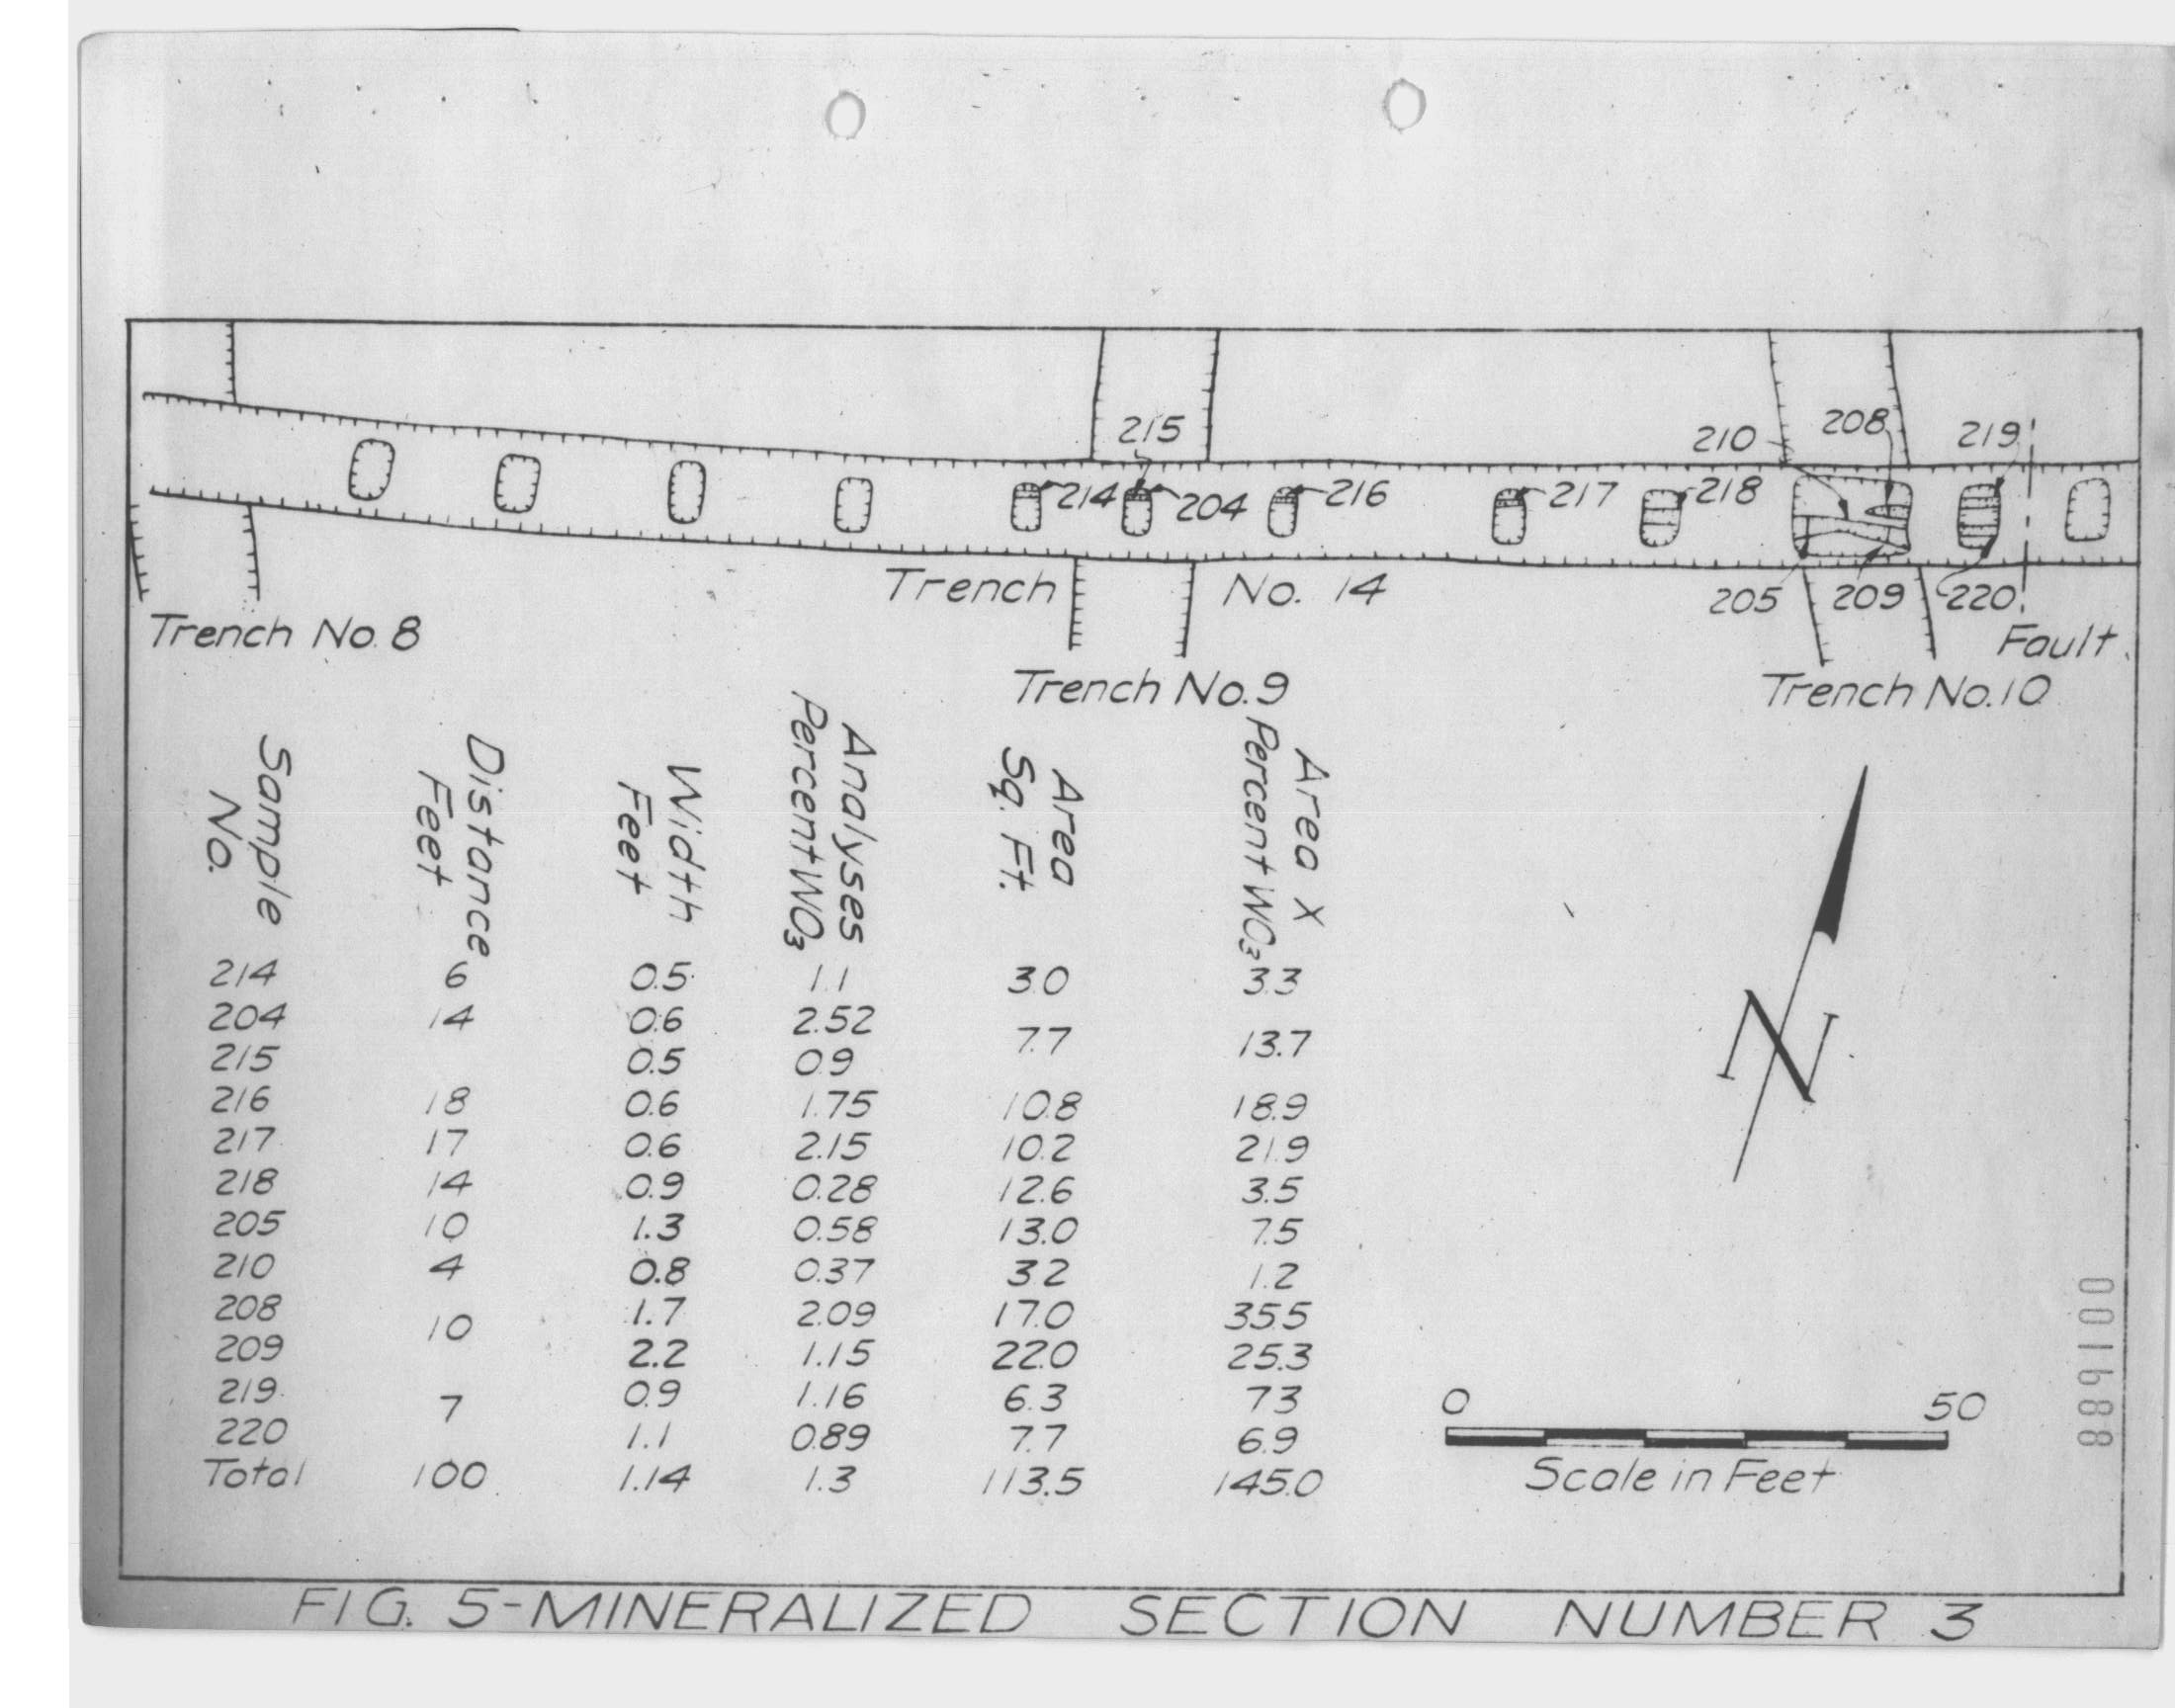 215
210
208
219
214
204
216
217
218
Trench No. 14
205
209
220
Trench No. 8
Fault
Trench No. 9
Trench No. 10
Sample No.	Distance Feet	Width Feet	Analyses Percent WO3	Area Sq. Ft.	Area X Percent WO3
214	6	0.5	1.1	3.0	3.3
204	14	0.6	2.52	7.7	13.7
215	0.5	0.9
216	18	0.6	1.75	10.8	18.9
217	17	0.6	2.15	10.2	21.9
218	14	0.9	0.28	12.6	3.5
205	10	1.3	0.58	13.0	7.5
210	4	0.8	0.37	3.2	1.2
208	10	1.7	2.09	17.0	35.5
209	2.2	1.15	22.0	25.3
219	7	0.9	1.16	6.3	7.3
220	1.1	0.89	7.7	6.9
Total	100	1.14	1.3	113.5	145.0
N
0	50
Scale in Feet
001688
FIG. 5-MINERALIZED SECTION NUMBER 3